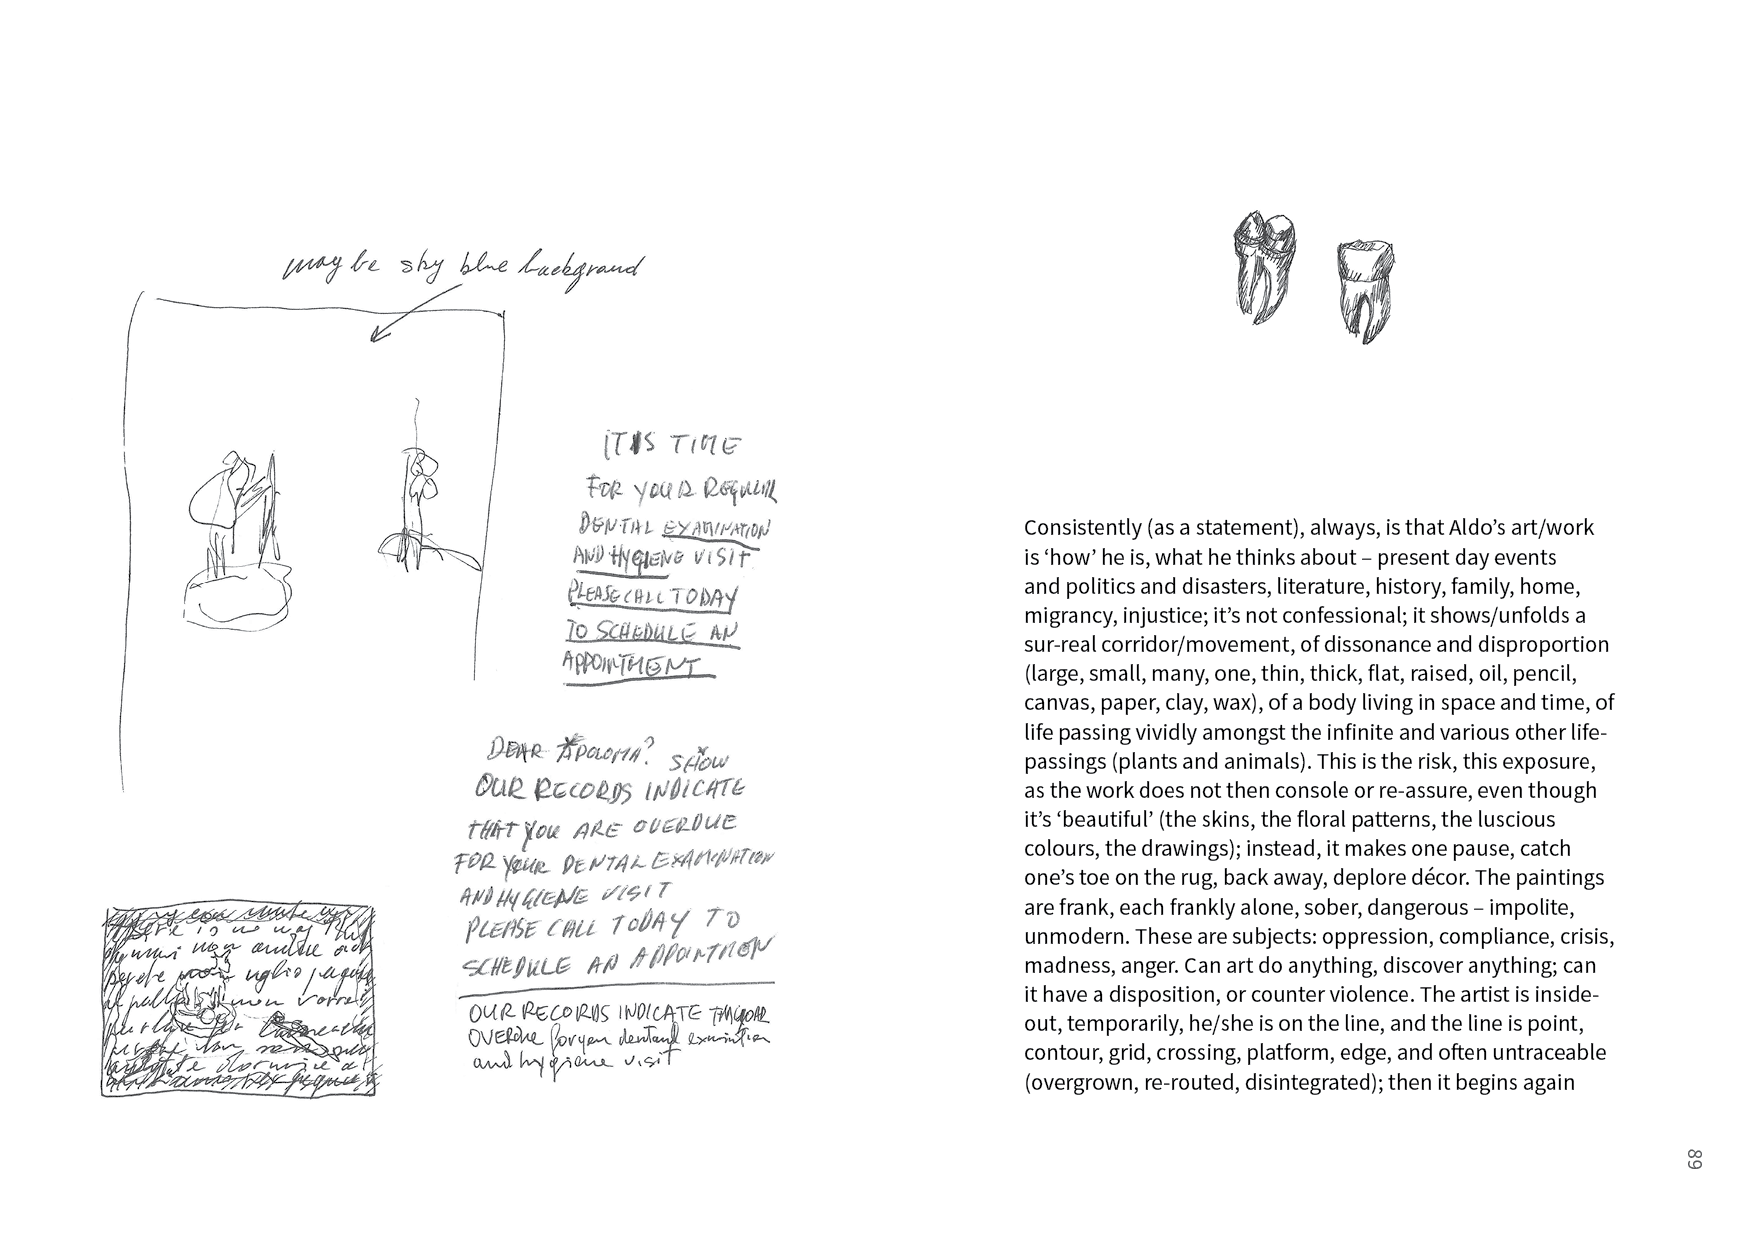 maybe sky blue backgraund
IT IS TIME
FOR YOUR REGULAR
DENTAL EXAMINATION
AND HYGIENE VISIT
PLEASE CALL TODAY
TO SCHEDULE AN
APPOINTMENT
DEAR APOLONIA? SHOW
OUR RECORDS INDICATE
THAT YOU ARE OVERDUE
FOR YOUR DENTAL EXAMINATION
AND HYGIENE VISIT
PLEASE CALL TODAY TO
SCHEDULE AN APPOINTMEN
OUR RECORDS INDICATE
OVERDUE for your dental
and hygiene visit
there is no way
Consistently (as a statement), always, is that Aldo’s art/work
is ‘how’ he is, what he thinks about – present day events
and politics and disasters, literature, history, family, home,
migrancy, injustice; it’s not confessional; it shows/unfolds a
sur-real corridor/movement, of dissonance and disproportion
(large, small, many, one, thin, thick, flat, raised, oil, pencil,
canvas, paper, clay, wax), of a body living in space and time, of
life passing vividly amongst the infinite and various other life-
passings (plants and animals). This is the risk, this exposure,
as the work does not then console or re-assure, even though
it’s ‘beautiful’ (the skins, the floral patterns, the luscious
colours, the drawings); instead, it makes one pause, catch
one’s toe on the rug, back away, deplore décor. The paintings
are frank, each frankly alone, sober, dangerous – impolite,
unmodern. These are subjects: oppression, compliance, crisis,
madness, anger. Can art do anything, discover anything; can
it have a disposition, or counter violence. The artist is inside-
out, temporarily, he/she is on the line, and the line is point,
contour, grid, crossing, platform, edge, and often untraceable
(overgrown, re-routed, disintegrated); then it begins again
89